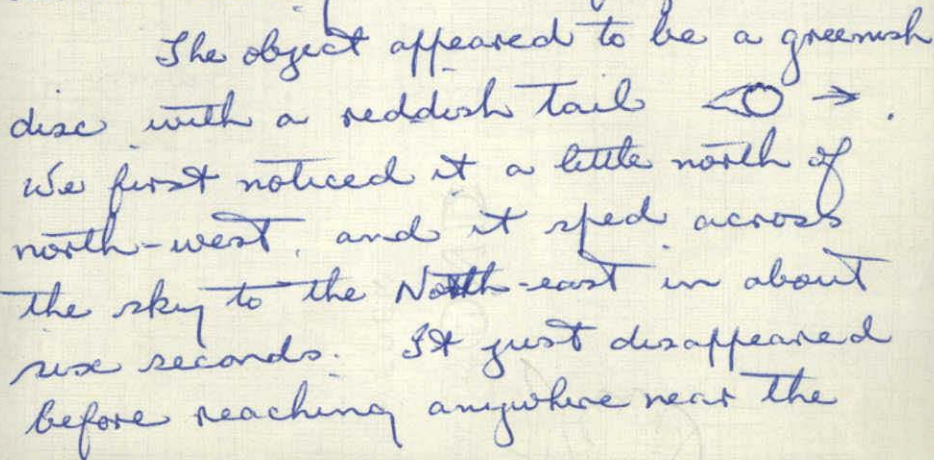 The object appeared to be a greenish
disc with a reddish tail → .
We first noticed it a little north of
north-west, and it sped across
the sky to the North-east in about
six seconds. It just disappeared
before reaching anywhere near the